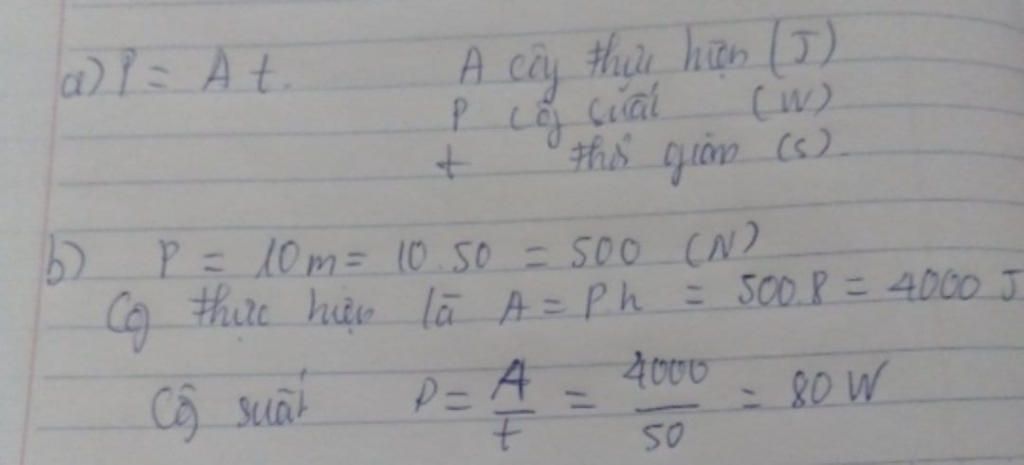 a) P = A t. A công thực hiện (J)
P công suất (W)
t thời gian (s).
b) P = 10 m = 10.50 = 500 (N)
Công thực hiện là A = P h = 500.8 = 4000 J
Công suất P = A/t = 4000/50 = 80 W